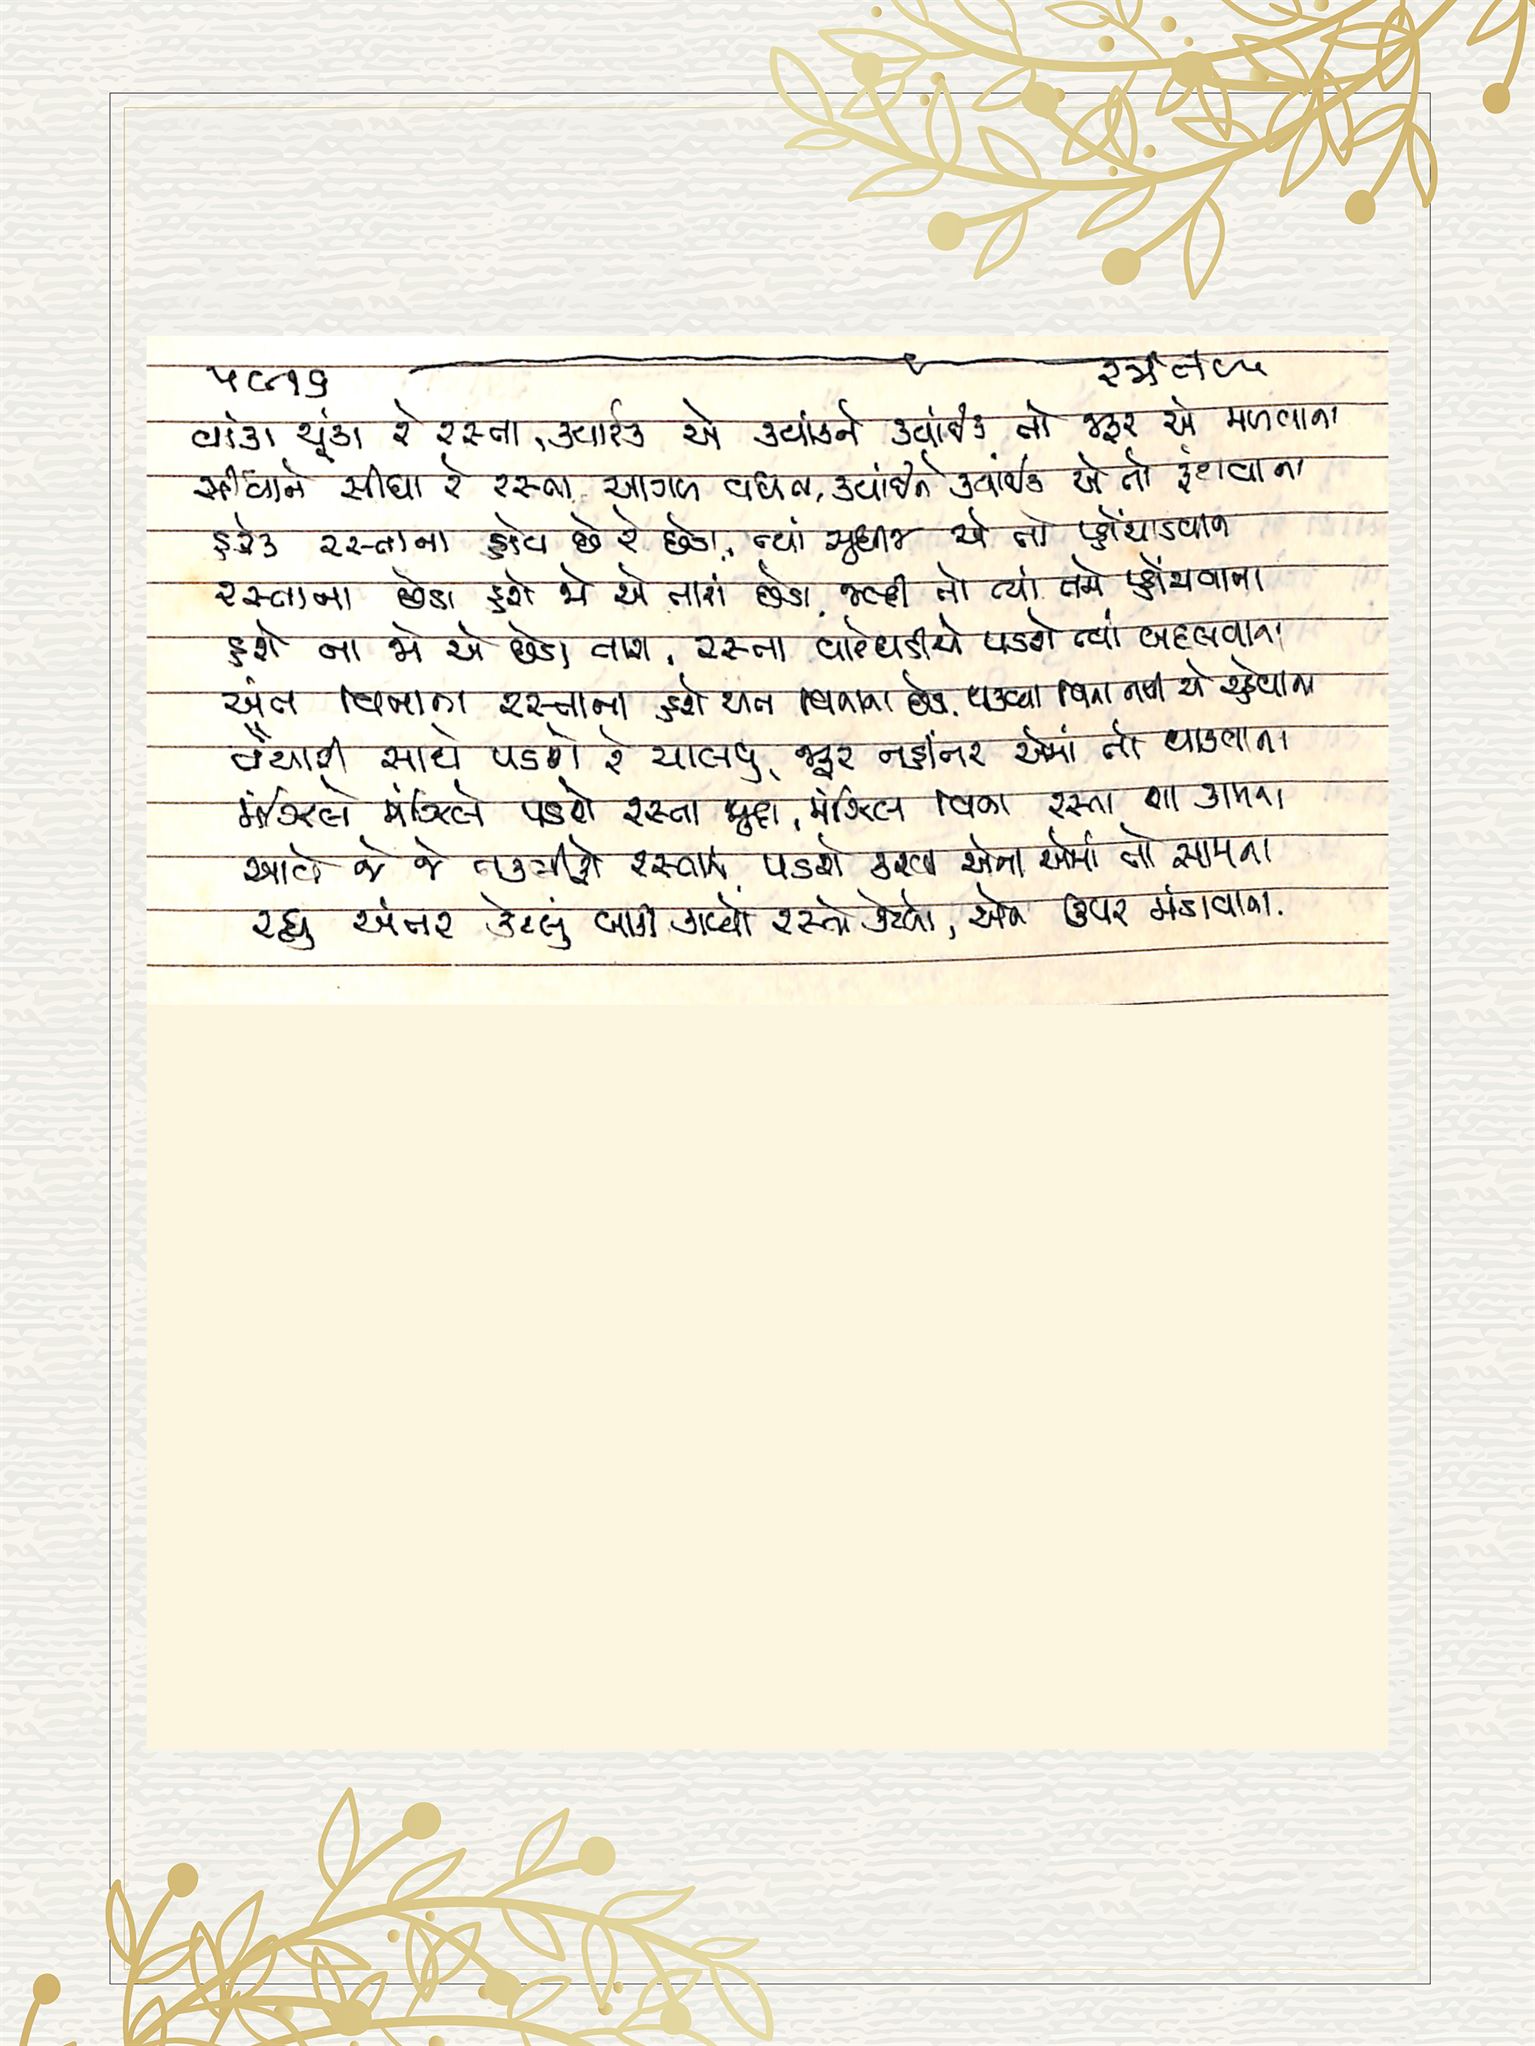 ૫૯૧૬
વાંકા ચૂંકા રે રસ્તા, ક્યારેક એ ક્યાંકને ક્યાંક તો જરૂર એ મળવાના
સીધાને સીધા રે રસ્તા આગળ વધતા, ક્યાંકને ક્યાંક એ તો રૂંધાવાના
હરેક રસ્તાના હોય છે રે છેડા, ત્યાં સુધીજ એ તો પહોંચાડવાના
રસ્તાના છેડા હશે જો એ તારા છેડા, જલ્દી તો ત્યાં તમે પહોંચવાના
હશે ના જો એ છેડા તારા, રસ્તા વારેઘડીયે પડશે ત્યાં બદલવાના
અંત વિનાના રસ્તાના હશે અંત વિનાના છેડા, થકવ્યા વિના નથી એ રહેવાના
તૈયારી સાથે પડશે રે ચાલવું, જરૂર નહીંતર એમાં તો થાકવાના
મંઝિલે મંઝિલે પડશે રસ્તા જુદા, મંઝિલ વિના રસ્તા શા કામના
આવે જે જે તકલીફો રસ્તામાં, પડશે કરવા એના એમાં તો સામના
રહ્યું અંતર કેટલું બાકી કાપ્યો રસ્તો કેટલો, એના ઉપર મંડાવાના.